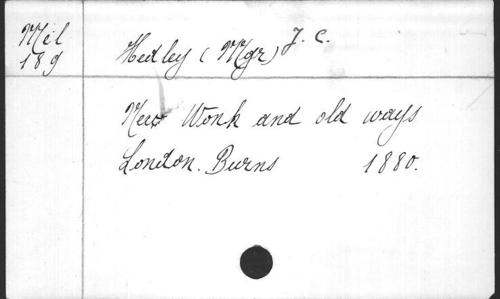 Mil
189
Hedley (Mgr) J. C.
New Wonk and old ways
London. Burns 1880.